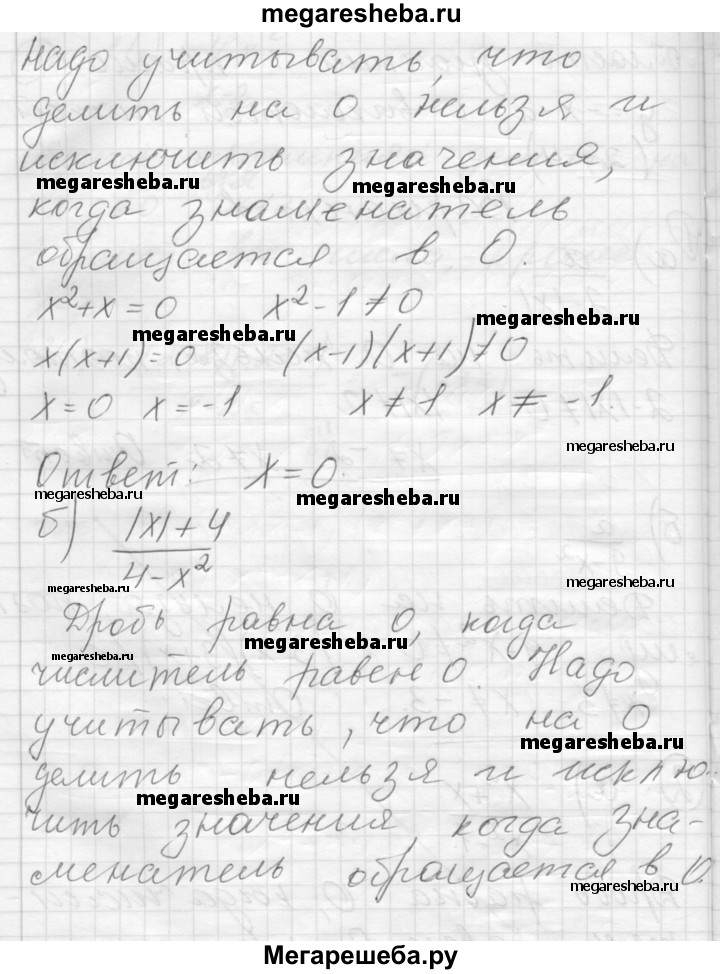 megaresheba.ru
Надо учитывать, что
делить на 0 нельзя и
исключить значения,
megaresheba.ru megaresheba.ru
когда знаменатель
обращается в 0.
x²+x=0 x²-1≠0
megaresheba.ru
megaresheba.ru
x(x+1)=0 (x-1)(x+1)≠0
x=0 x=-1 x≠1 x≠-1.
megaresheba.ru
Ответ: x=0.
megaresheba.ru megaresheba.ru
б) |x|+4
4-x²
megaresheba.ru megaresheba.ru
Дробь равна 0, когда
megaresheba.ru
megaresheba.ru
числитель равен 0. Надо
учитывать, что на 0
megaresheba.ru
делить нельзя и исклю-
megaresheba.ru
чить значения, когда зна-
менатель обращается в 0.
megaresheba.ru
Мегарешеба.ру